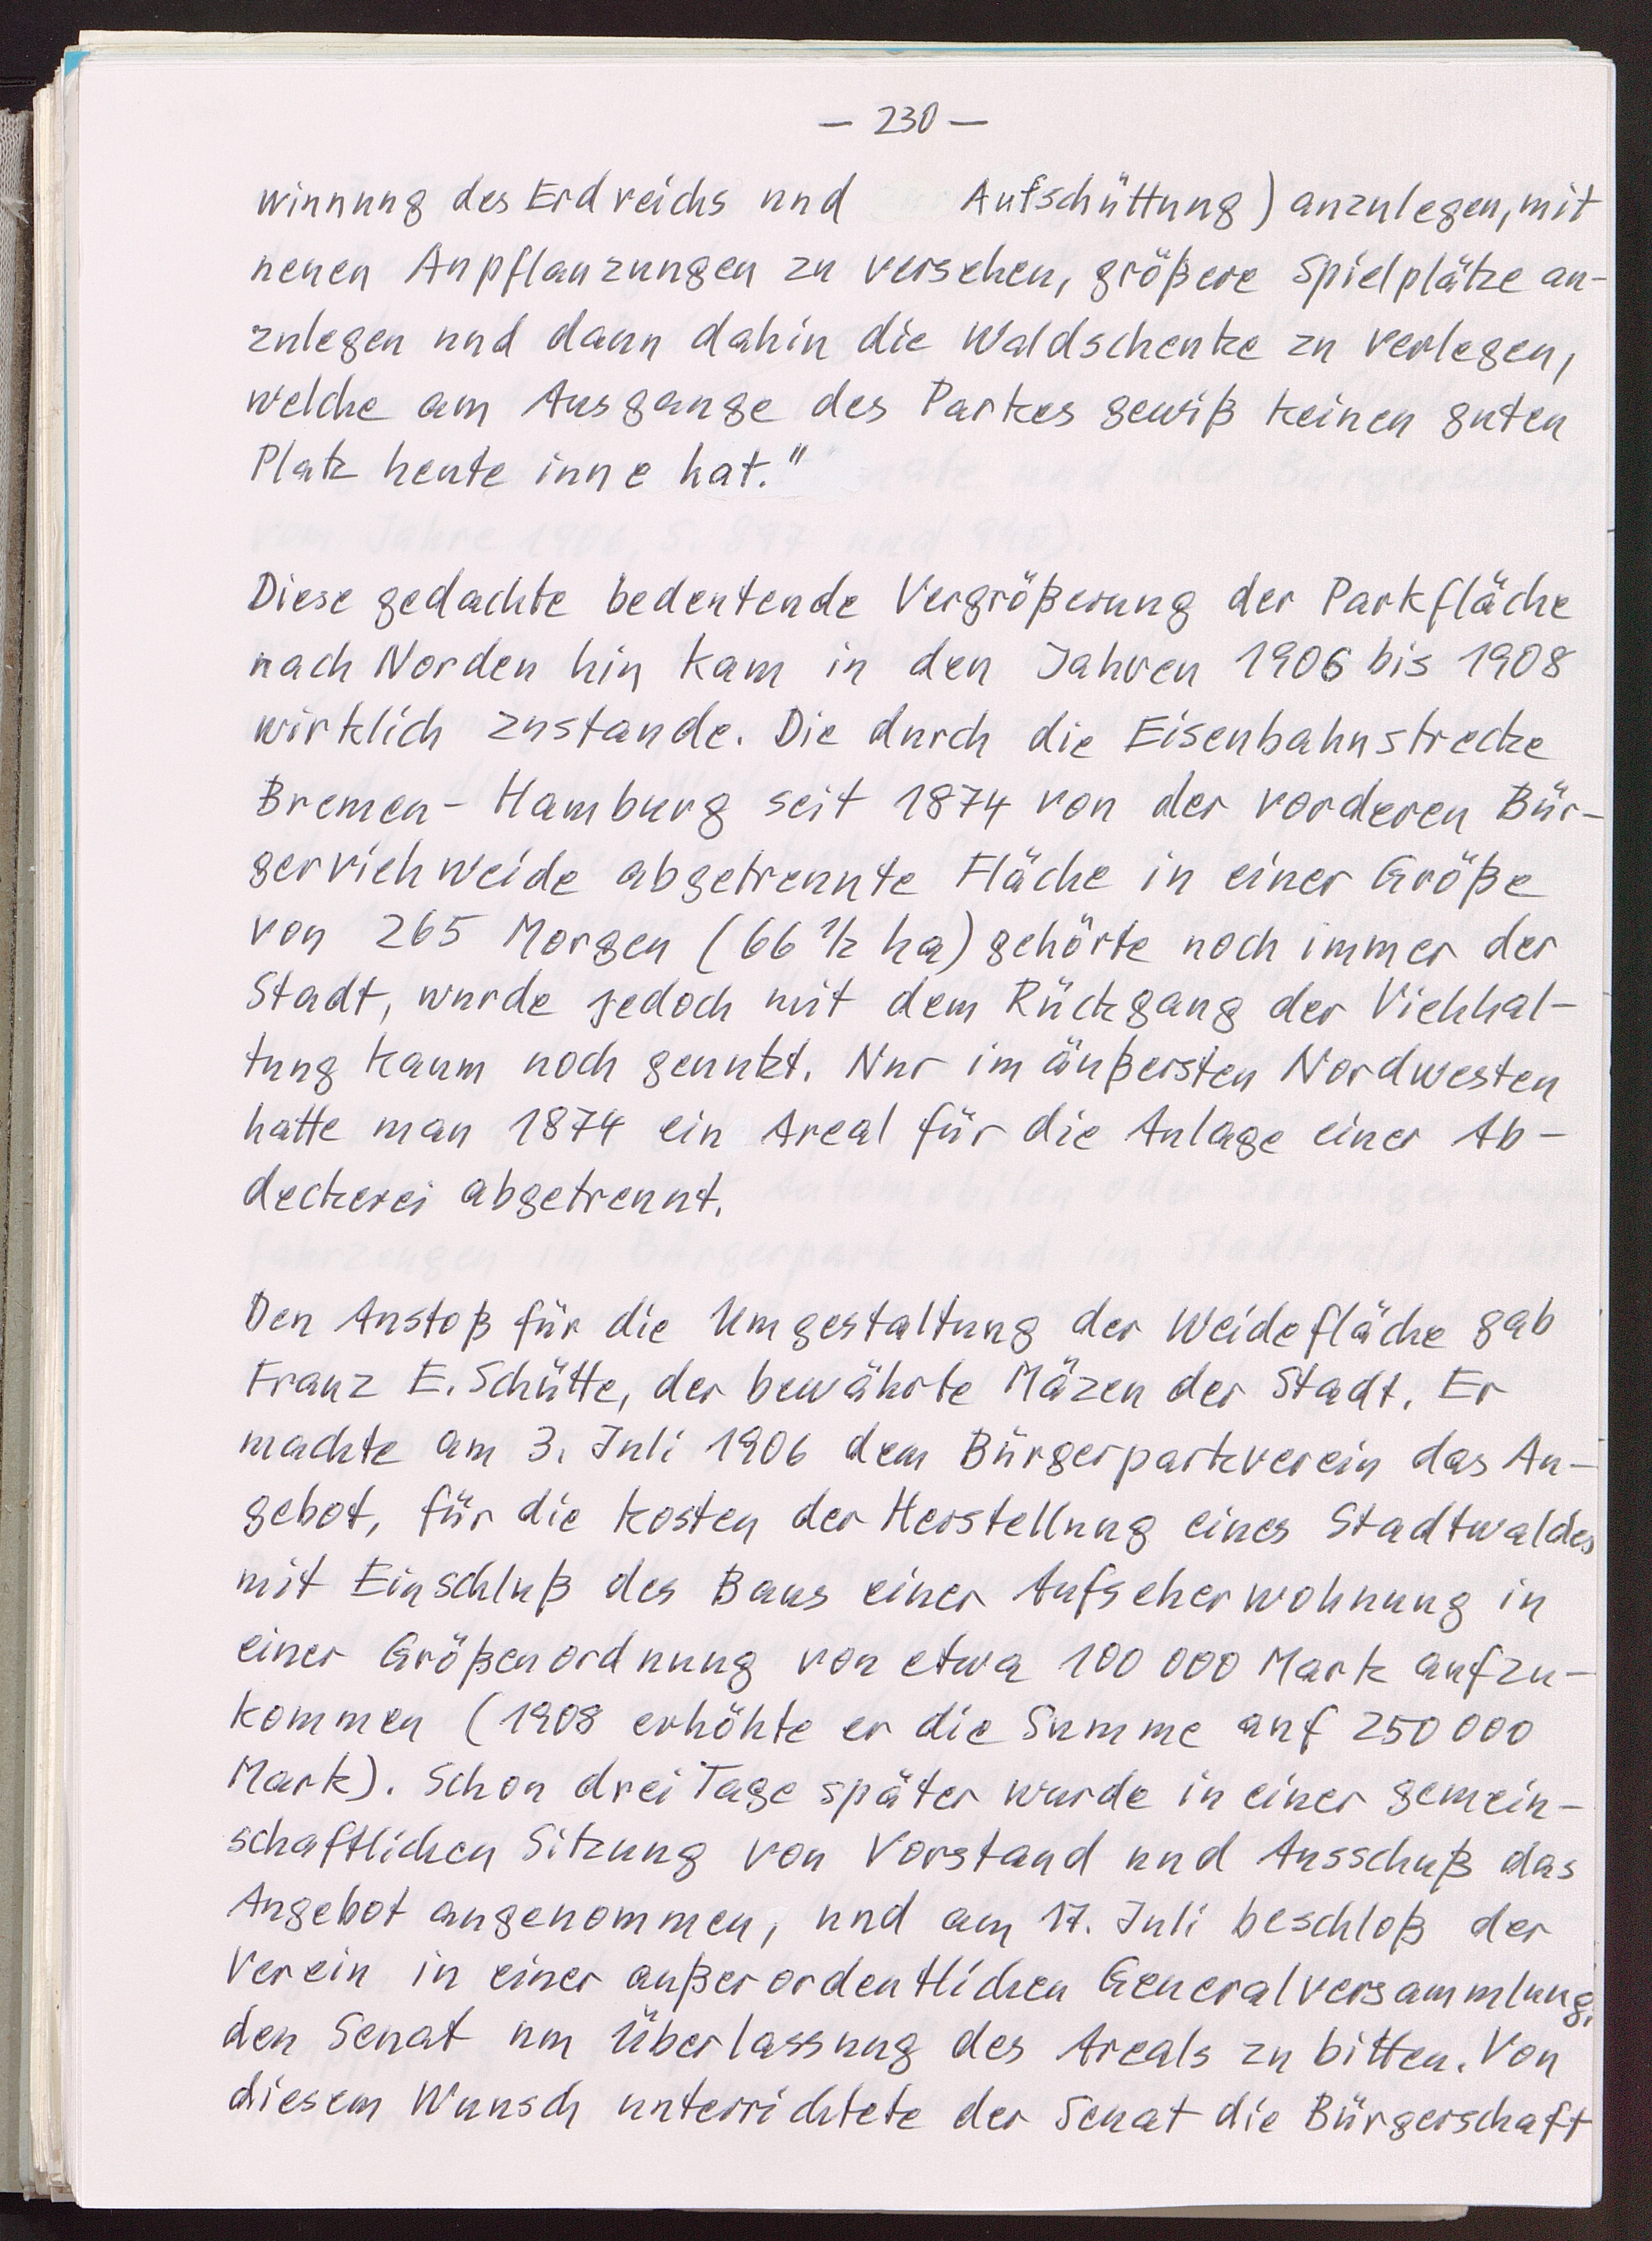 — 230 —
winnung des Erdreichs und Aufschüttung) anzulegen, mit
neuen Anpflanzungen zu versehen, größere Spielplätze an-
zulegen und dann dahin die Waldschenke zu verlegen,
welche am Ausgange des Parkes gewiß keinen guten
Platz heute inne hat."
Diese gedachte bedeutende Vergrößerung der Parkfläche
nach Norden hin kam in den Jahren 1906 bis 1908
wirklich zustande. Die durch die Eisenbahnstrecke
Bremen - Hamburg seit 1874 von der vorderen Bür-
gerviehweide abgetrennte Fläche in einer Größe
von 265 Morgen (66 ½ ha) gehörte noch immer der
Stadt, wurde jedoch mit dem Rückgang der Viehhal-
tung kaum noch genutzt. Nur im äußersten Nordwesten
hatte man 1874 ein Areal für die Anlage einer Ab-
deckerei abgetrennt.
Den Anstoß für die Umgestaltung der Weidefläche gab
Franz E. Schütte, der bewährte Mäzen der Stadt. Er
machte am 3. Juli 1906 dem Bürgerparkverein das An-
gebot, für die Kosten der Herstellung eines Stadtwaldes
mit Einschluß des Baus einer Aufseherwohnung in
einer Größenordnung von etwa 100 000 Mark aufzu-
kommen (1908 erhöhte er die Summe auf 250 000
Mark). Schon drei Tage später wurde in einer gemein-
schaftlichen Sitzung von Vorstand und Ausschuß das
Angebot angenommen, und am 17. Juli beschloß der
Verein in einer außerordentlichen Generalversammlung,
den Senat um Überlassung des Areals zu bitten. Von
diesem Wunsch unterrichtete der Senat die Bürgerschaft